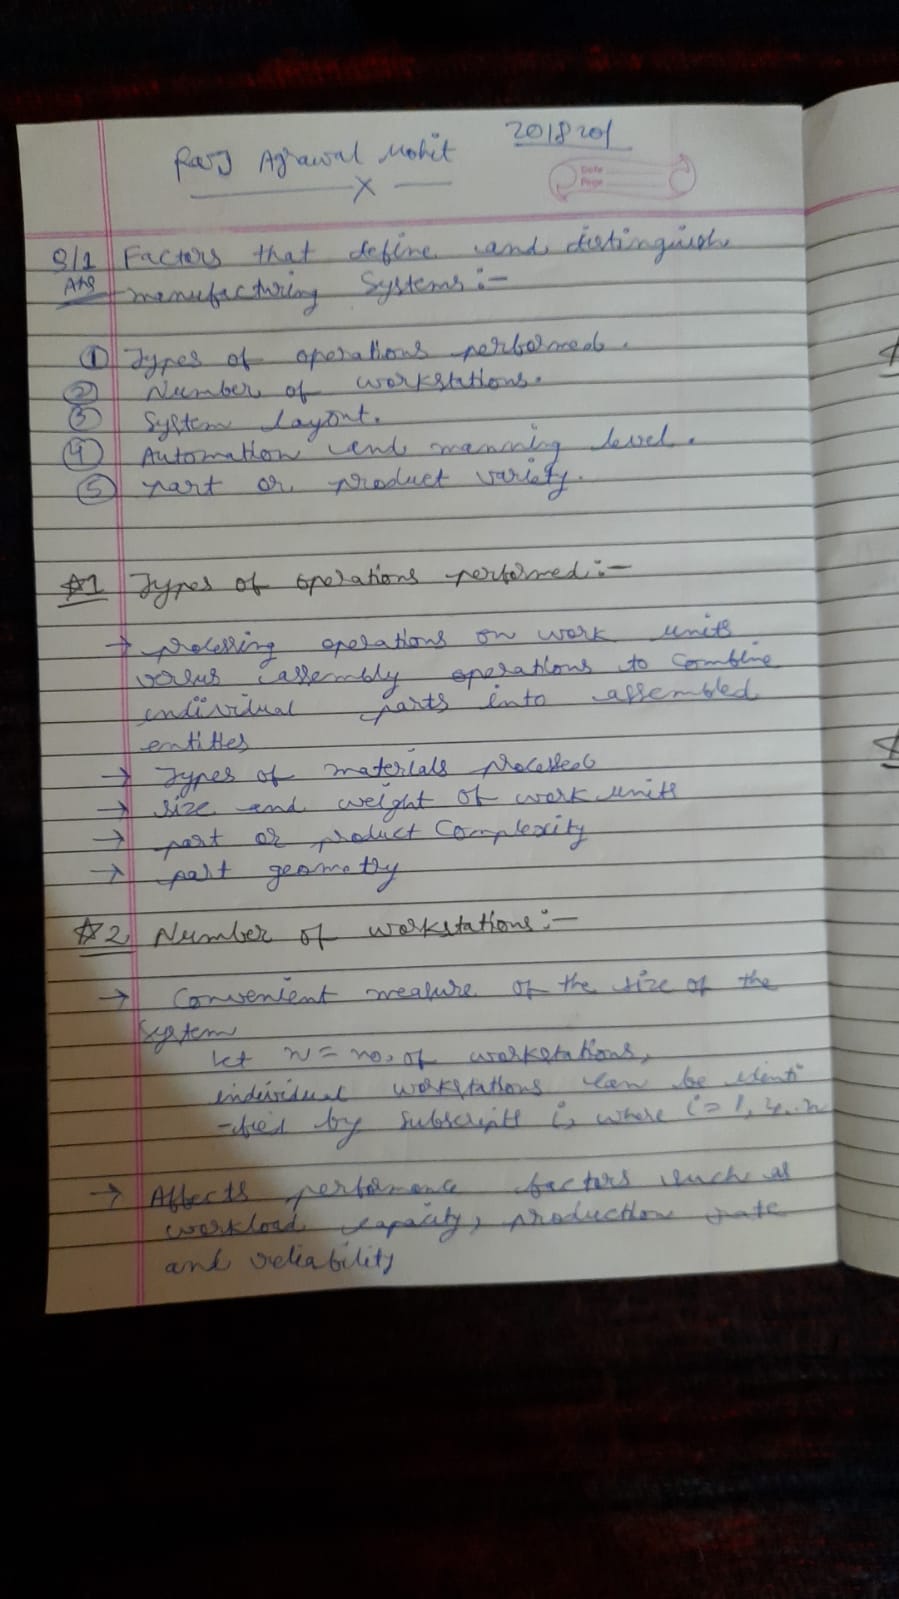 Raj Agrawal Mohit
2018201
Date
Page
X
Q/1 Factors that define and distinguish
Ans manufacturing Systems:-
① Types of operations performed.
② Number of workstations.
③ System layout.
④ Automation and manning level.
⑤ part or product variety.
☆1 Types of operations performed:-
→ processing operations on work units
versus assembly operations to combine
individual parts into assembled
entities
→ Types of materials processed
→ size and weight of work units
→ part or product complexity
→ part geometry
☆2 Number of workstations:-
→ Convenient measure of the size of the
System
let n = no. of workstations,
individual workstations can be identi
-fied by subscript i, where i = 1, 2,..n
→ Affects performance factors such as
workload capacity, production rate
and reliability